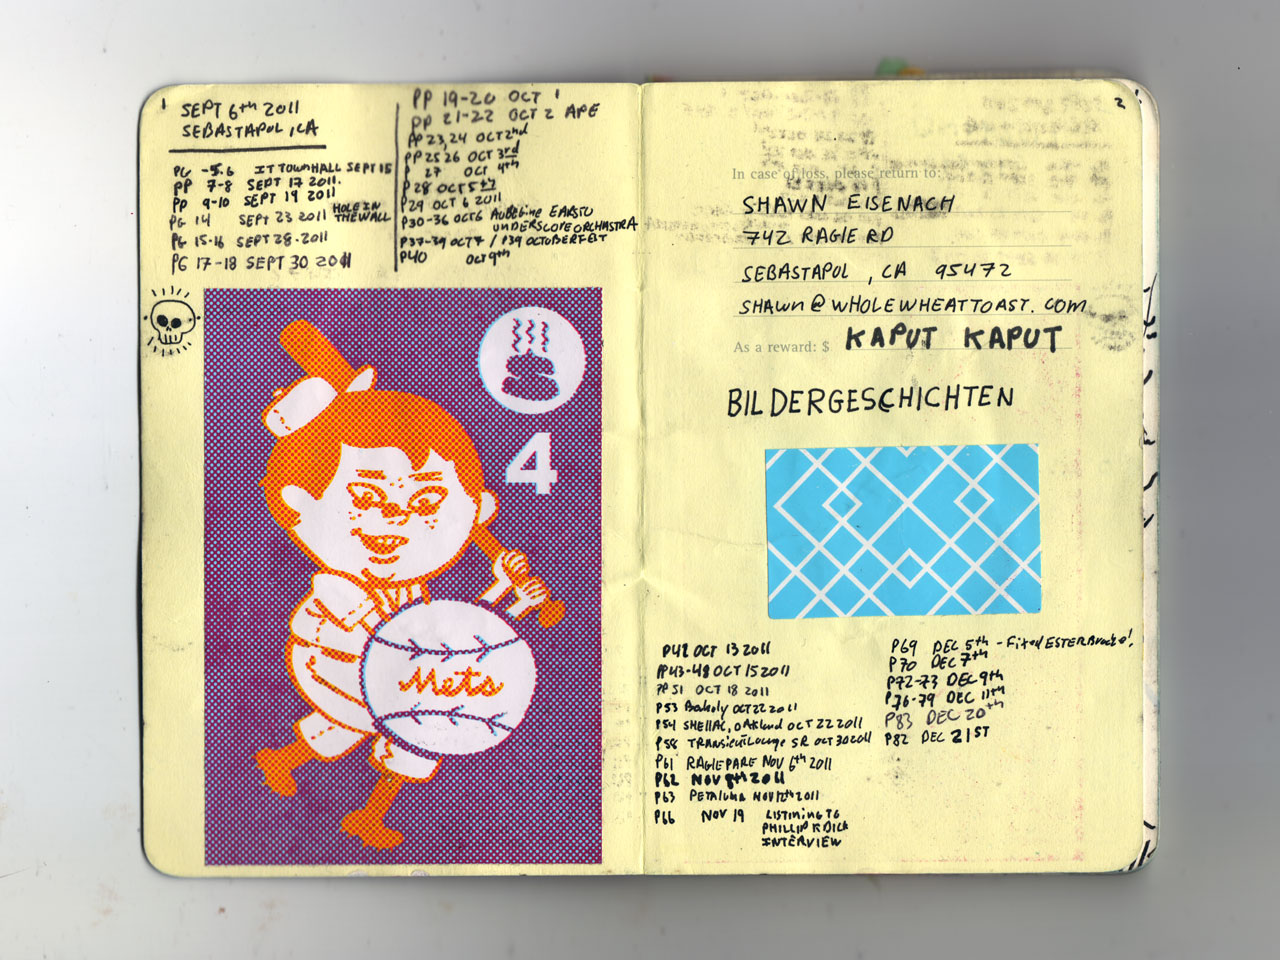 1
SEPT 6th 2011
SEBASTAPOL, CA
PG -5.6 IT TOWNHALL SEPT 15
PP 7-8 SEPT 17 2011.
PP 9-10 SEPT 19 2011
PG 14 SEPT 23 2011 HOLE IN
THE WALL
PG 15-16 SEPT 28-2011
PG 17-18 SEPT 30 2011
PP 19-20 OCT 1
PP 21-22 OCT 2 APE
PP 23,24 OCT 2nd
PP 25 26 OCT 3rd
P 27 OCT 4th
P28 OCT 5th
P29 OCT 6 2011
P30-36 OCT 6
UNDERSCORE ORCHRASTRA
P37-39 OCT 7 / P39 OCTOBERFEST
P40 OCT 9th
4
Mets
2
In case of loss, please return to:
SHAWN EISENACH
742 RAGLE RD
SEBASTAPOL, CA 95472
SHAWN@WHOLEWHEATTOAST.COM
As a reward: $ KAPUT KAPUT
BILDERGESCHICHTEN
P42 OCT 13 2011
PP43-48 OCT 15 2011
PP 51 OCT 18 2011
P53 OCT 22 2011
P54 SHELLAC, OAKLAND OCT 22 2011
P58 TRANSIENT Lounge SR OCT 30 2011
P61 RAGLE PARK NOV 6th 2011
P62 NOV 8th 2011
P63 PETALUMA NOV 12th 2011
P66 NOV 19 LISTINING TO
PHILLIP K DICK
INTERVIEW
P69 DEC 5th - ESTERBROOK!
P70 DEC 7th
P72-73 DEC 9th
P76-79 DEC 11th
P83 DEC 20th
P82 DEC 21ST